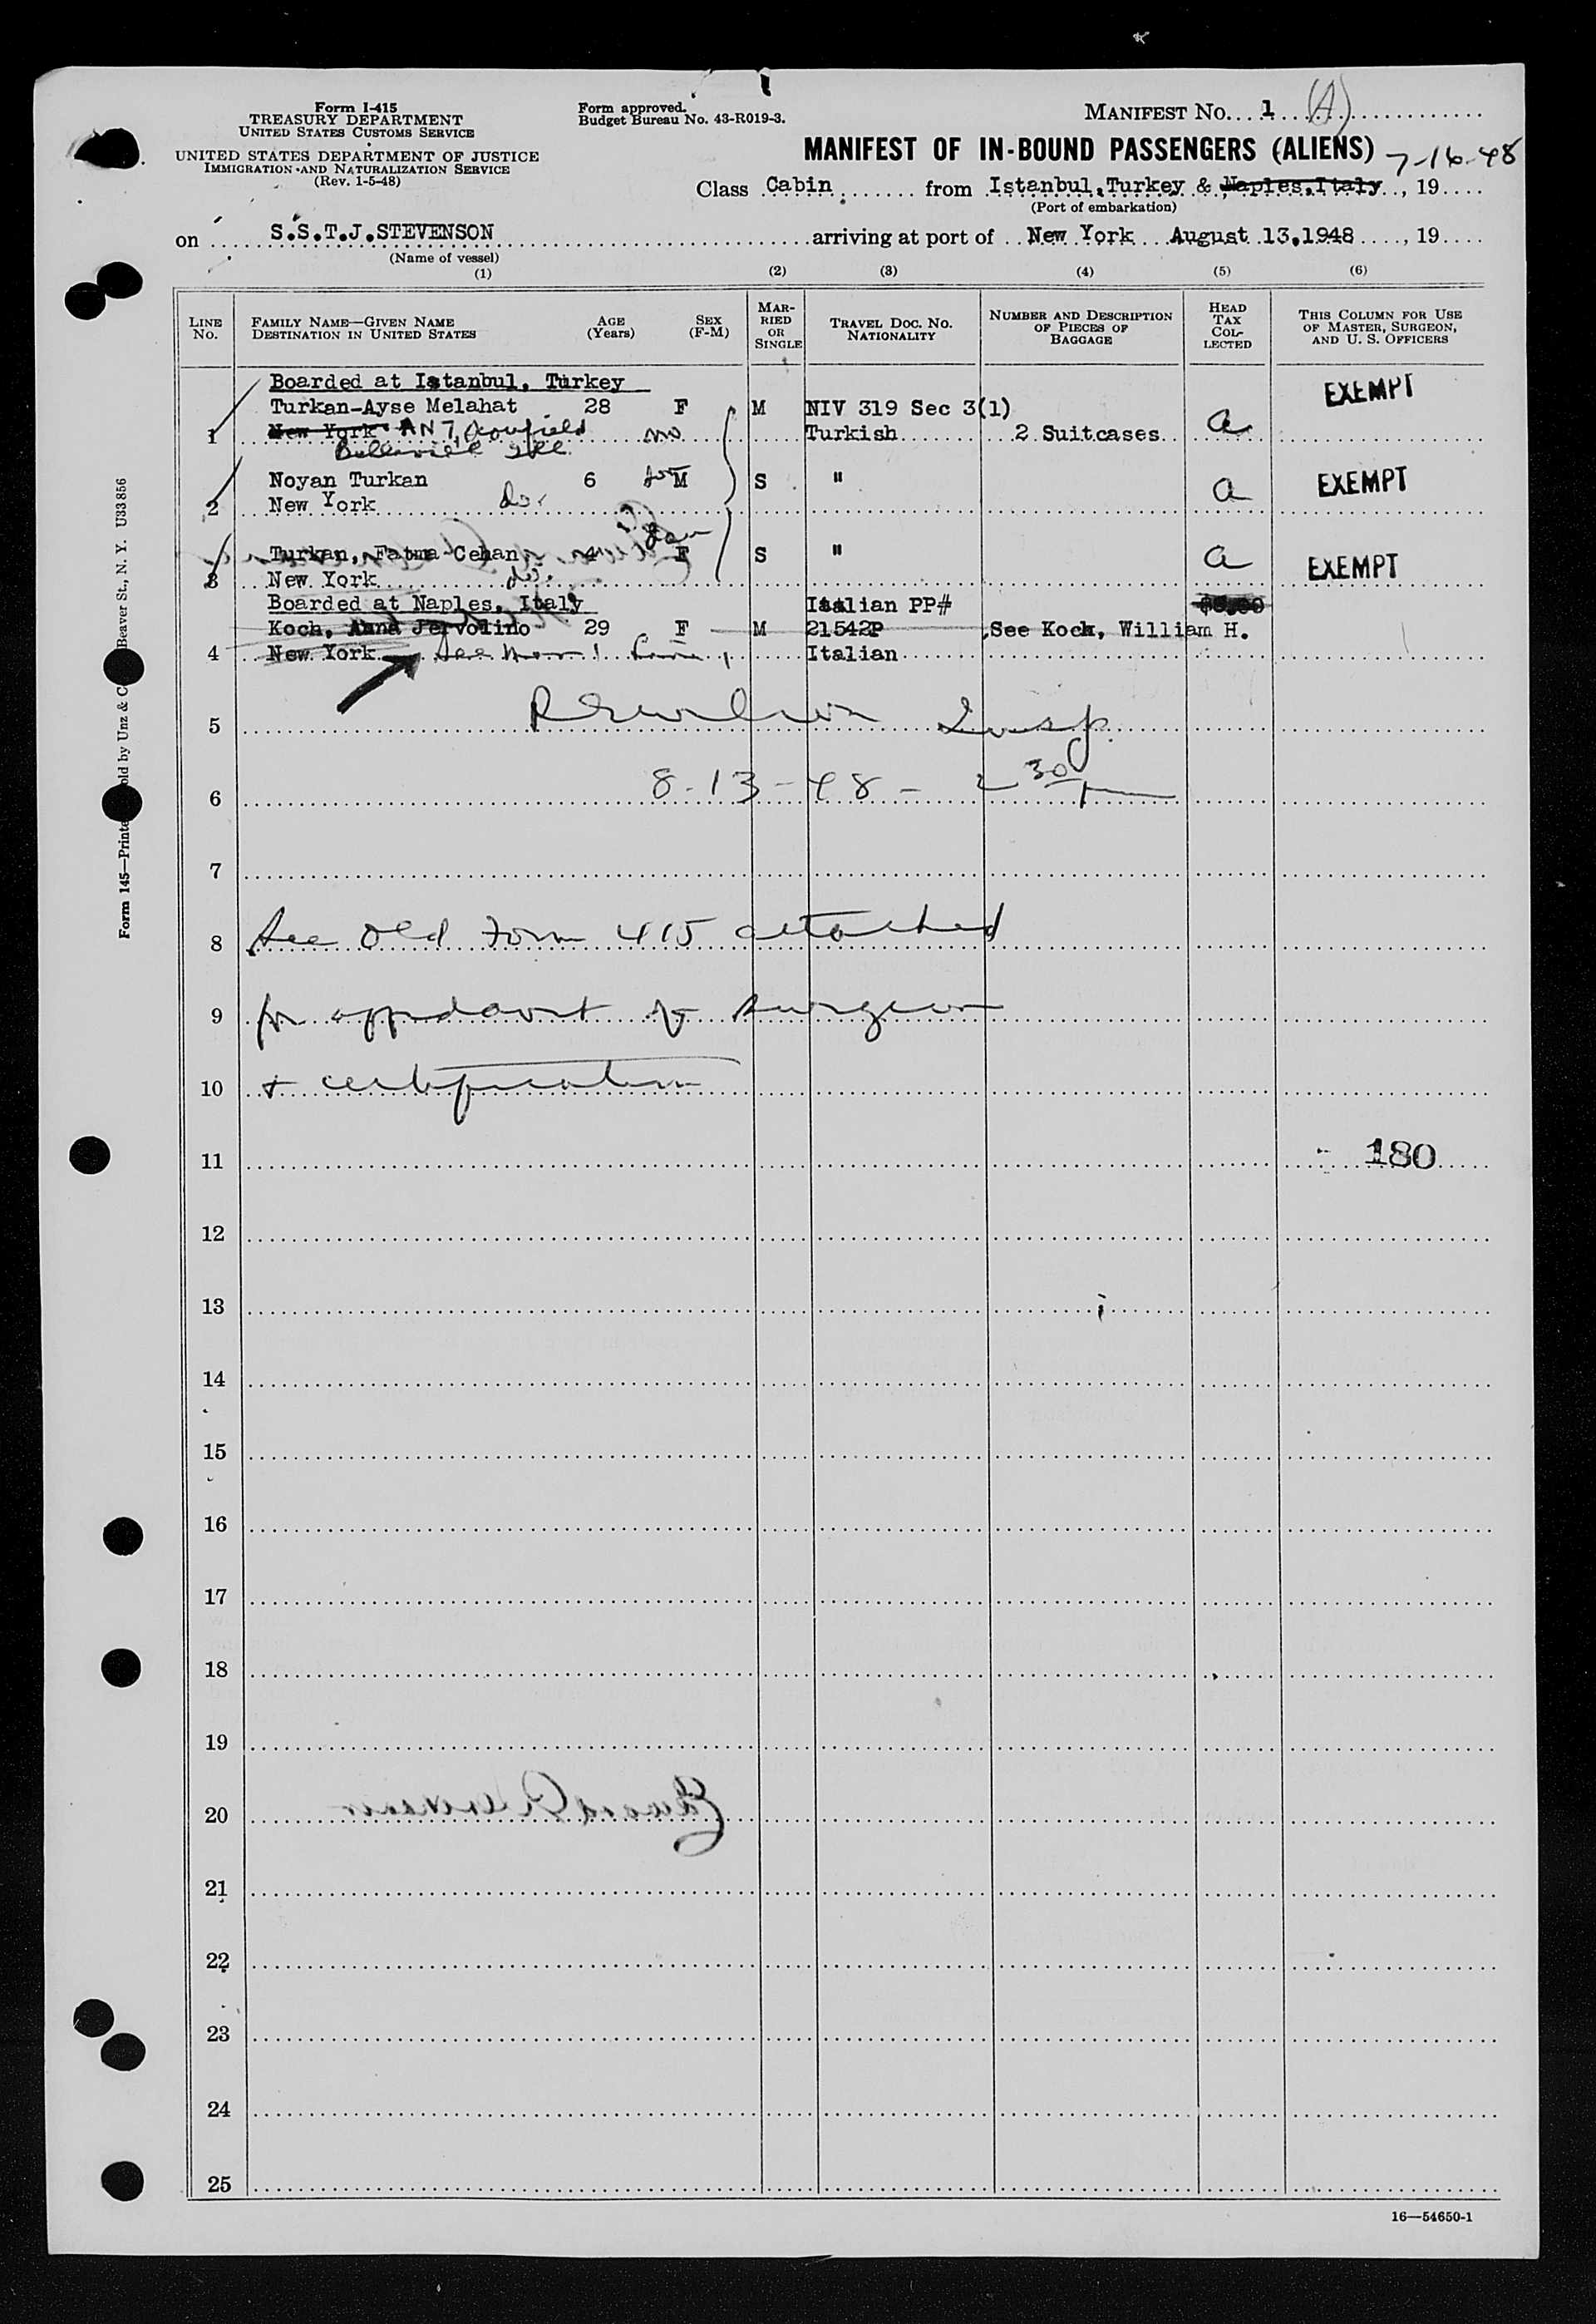 Form I-415
TREASURY DEPARTMENT
UNITED STATES CUSTOMS SERVICE
UNITED STATES DEPARTMENT OF JUSTICE
IMMIGRATION AND NATURALIZATION SERVICE
(Rev. 1-5-48)
Form approved.
Budget Bureau No. 43-R019-3.
MANIFEST NO. 1 (A)
MANIFEST OF IN-BOUND PASSENGERS (ALIENS) 7-16-48
Class Cabin from Istanbul, Turkey & Naples, Italy, 19
(Port of embarkation)
on S.S.T.J.STEVENSON arriving at port of New York August 13, 1948, 19
(Name of vessel)
(1) (2) (3) (4) (5) (6)
LINE NO.
FAMILY NAME—GIVEN NAME
DESTINATION IN UNITED STATES
AGE (Years)
SEX (F-M)
MARRIED OR SINGLE
TRAVEL DOC. NO.
NATIONALITY
NUMBER AND DESCRIPTION OF PIECES OF BAGGAGE
HEAD TAX COLLECTED
THIS COLUMN FOR USE OF MASTER, SURGEON, AND U. S. OFFICERS
Boarded at Istanbul, Turkey
Turkan-Ayse Melahat 28 F M NIV 319 Sec 3(1) EXEMPT
1 New York Turkish 2 Suitcases a
Belleville Ill
Noyan Turkan 6 M S " a EXEMPT
2 New York do.
Turkan, Fatma Cehan 4 F S " a EXEMPT
3 New York do.
Boarded at Naples, Italy Italian PP# $8.00
Koch, Anna Jervolino 29 F M 21542P See Koch, William H.
4 New York See Italian
5 Insp.
6 8-13-48 - 2 30 pm
7
8 See old Form 415 attached
9 for affidavit of surgeon
10 & certification
11 180
12
13
14
15
16
17
18
19
20
21
22
23
24
25
16—54650-1
Form 145—Printed Sold by Unz & C Beaver St., N. Y. U33856